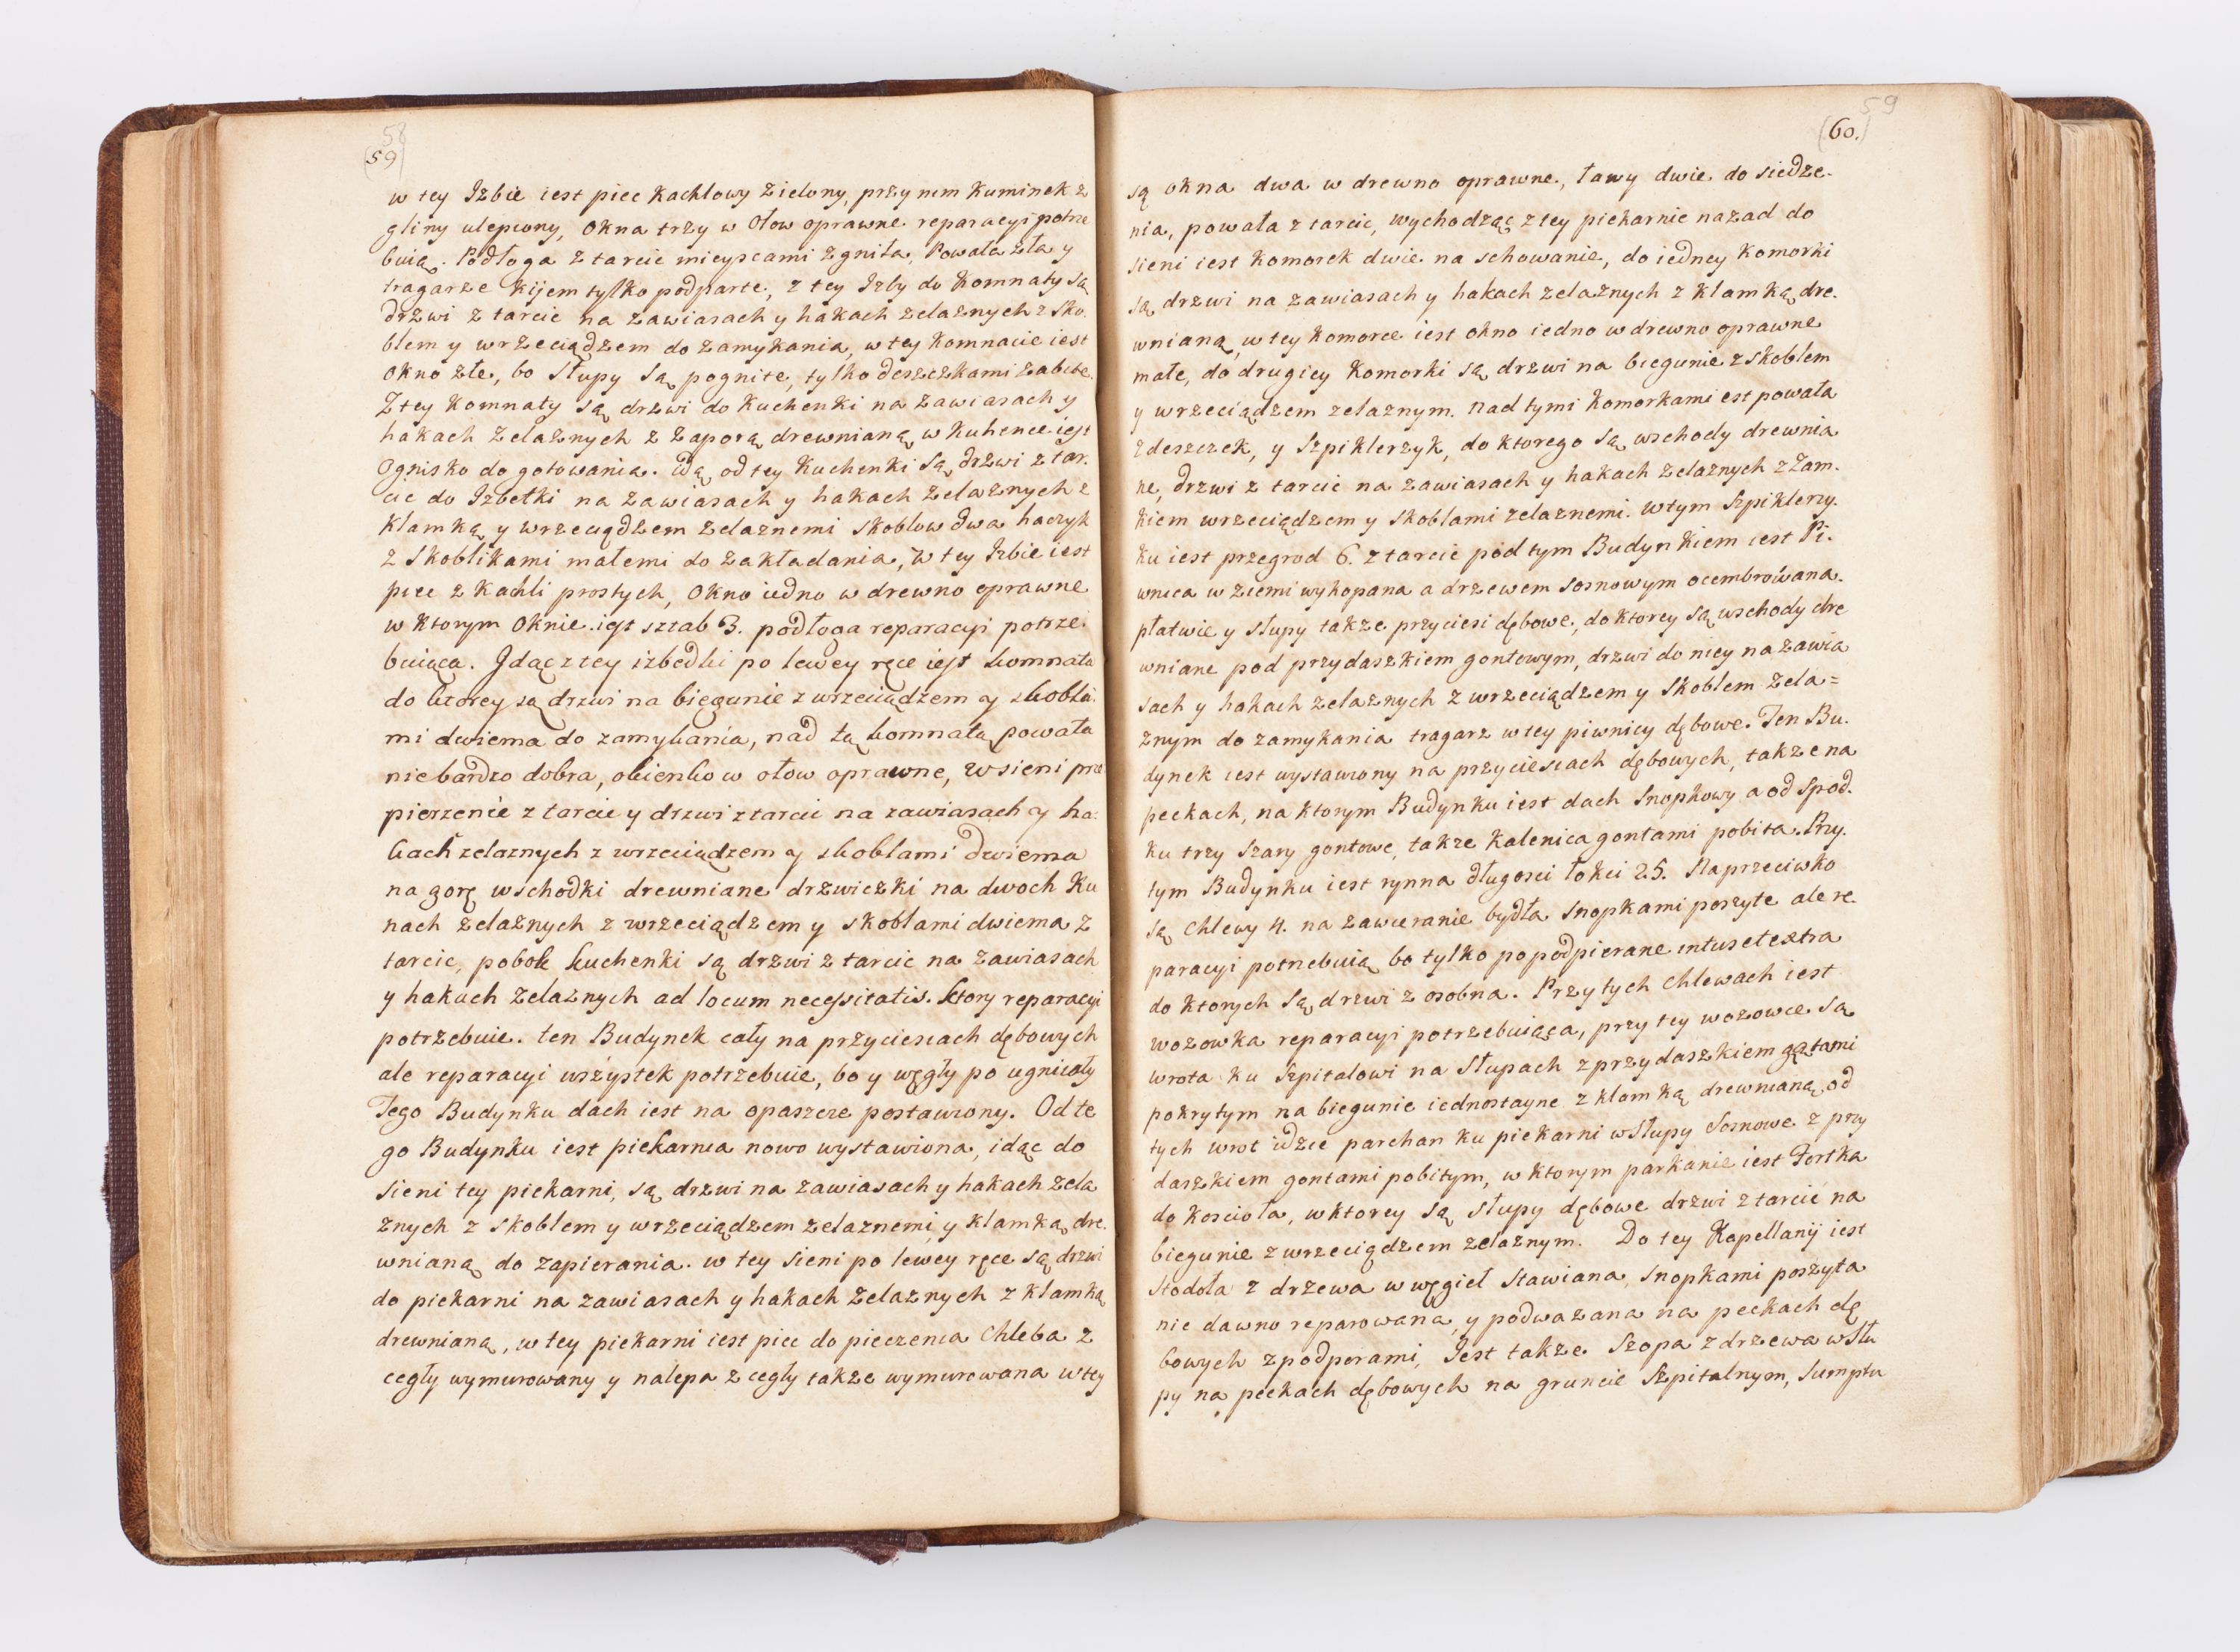 58
(59)
w tey Izbie iest piec Kachlowy Zielony, przy nim Kuminek z
gliny ulepiony, Okna trzy w Ołow oprawne reparacyi potrze
buią. Podłoga z tarcic mieyscami zgniła, Powała zła y
tragarze kijem tylko podparte, z tey Izby do Komnaty są
drzwi z tarcic na zawiasach y hakach zelaznych z sko.
blem y wrzeciądzem do zamykania, w tey Komnacie iest
okno złe, bo słupy są pognite, tylko deszczkami zabite.
Z tey Komnaty są drzwi do Kuchenki na zawiasach y
hakach zelaznych z zaporą drewnianą, w Kuhence iest
Ognisko do gotowania. idą od tey Kuchenki są drzwi z tar.
cic do Izbetki na zawiasach y hakach zelaznych z
Klamką y wrzeciądzem zelaznemi skoblow dwa haczyk
z skoblikami małemi do zakładania, W tey Izbie iest
piec z Kachli prostych, Okno iedno w drewno oprawne
w ktorym Oknie iest sztab 3. podłoga reparacyi potrze.
buiąca. Jdąc z tey izbedki po lewey ręce iest komnata
do ktorey są drzwi na biegunie z wrzeciądzem y skobla.
mi dwiema do zamykania, nad tą komnatą powała
nie bardzo dobra, okienko w ołow oprawne, w sieni prze
pierzenie z tarcic y drzwi z tarcic na zawiasach y ha:
kach zelaznych z wrzeciądzem y skoblami dwiema
na gorę wschodki drewniane drzwiczki na dwoch Ku
nach zelaznych z wrzeciądzem y skoblami dwiema z
tarcic, pobok kuchenki są drzwi z tarcic na zawiasach
y hakach zelaznych ad locum necessitatis. ktory reparacyi
potrzebuie. ten Budynek cały na przyciesiach dębowych
ale reparacyi wszystek potrzebuie, bo y węgły po ugniiały
Tego Budynku dach iest na opaszcze postawiony. Od te
go Budynku iest piekarnia nowo wystawiona, idąc do
sieni tey piekarni, są drzwi na zawiasach y hakach zela
znych z skoblem y wrzeciądzem zelaznemi y klamką dre.
wnianą do zapierania. w tey sieni po lewey ręce są drzwi
do piekarni na zawiasach y hakach zelaznych z klamką
drewnianą, w tey piekarni iest piec do pieczenia Chleba z
cegły wymurowany y nalepa z cegły także wymurowana w tey
59
(60.)
są okna dwa w drewno oprawne, ławy dwie do siedze-
nia, powała z tarcic, wychodząc z tey piekarnie nazad do
sieni iest Komorek dwie na schowanie, do iedney Komorki
są drzwi na zawiasach y hakach zelaznych z klamką dre.
wnianą, w tey Komorce iest okno iedno w drewno oprawne
małe, do drugiey Komorki są drzwi na biegunie z skoblem
y wrzeciądzem zelaznym. nad tymi Komorkami est powała
z deszczek, y Szpiklerzyk, do ktorego są wschody drewnia
ne, drzwi z tarcic na zawiasach y hakach zelaznych z Zam.
kiem wrzeciądzem y skoblami zelaznemi. w tym Szpiklerzy.
ku iest przegrod 6. z tarcic pod tym Budynkiem iest Pi.
wnica w ziemi wykopana a drzewem sosnowym ocembrowana.
płatwie y słupy takze przyciesi dębowe, do ktorey są wschody dre
wniane pod przydaszkiem gontowym, drzwi do niey na zawia
sach y hakach zelaznych z wrzeciądzem y skoblem zela=
znym do zamykania tragarz w tey piwnicy dębowe. Ten Bu.
dynek iest wystawiony na przyciesiach dębowych, takze na
peckach, na ktorym Budynku iest dach Snopkowy a od spod.
ku trzy szary gontowe, takze Kalenica gontami pobita. Przy.
tym Budynku iest rynna długosci łokci 25. Naprzeciwko
są Chlewy 4. na zawieranie bydła snopkami poszyte ale re.
paracyi potrzebuią bo tylko popodpierane intus et extra
do ktorych są drzwi z osobna. Przy tych Chlewach iest
wozowka reparacyi potrzebuiąca, przy tey wozowce są
wrota ku Szpitalowi na Słupach z przydaszkiem gątami
pokrytym na biegunie iednostayne z klamką drewnianą, od
tych wrot idzie parchan ku piekarni w Słupy Sosnowe z przy
daszkiem gontami pobitym, w ktorym parkanie iest Fortka
do Koscioła, w ktorey są słupy dębowe drzwi z tarcic na
biegunie z wrzeciądzem zelaznym. Do tey Kapellanij iest
stodoła z drzewa w węgieł stawiana, snopkami poszyta
nie dawno reparowana, y podwazana na peckach dę
bowych z podporami, Jest takze Szopa z drzewa w Słu
py na peckach dębowych na gruncie Szpitalnym, Sumptu